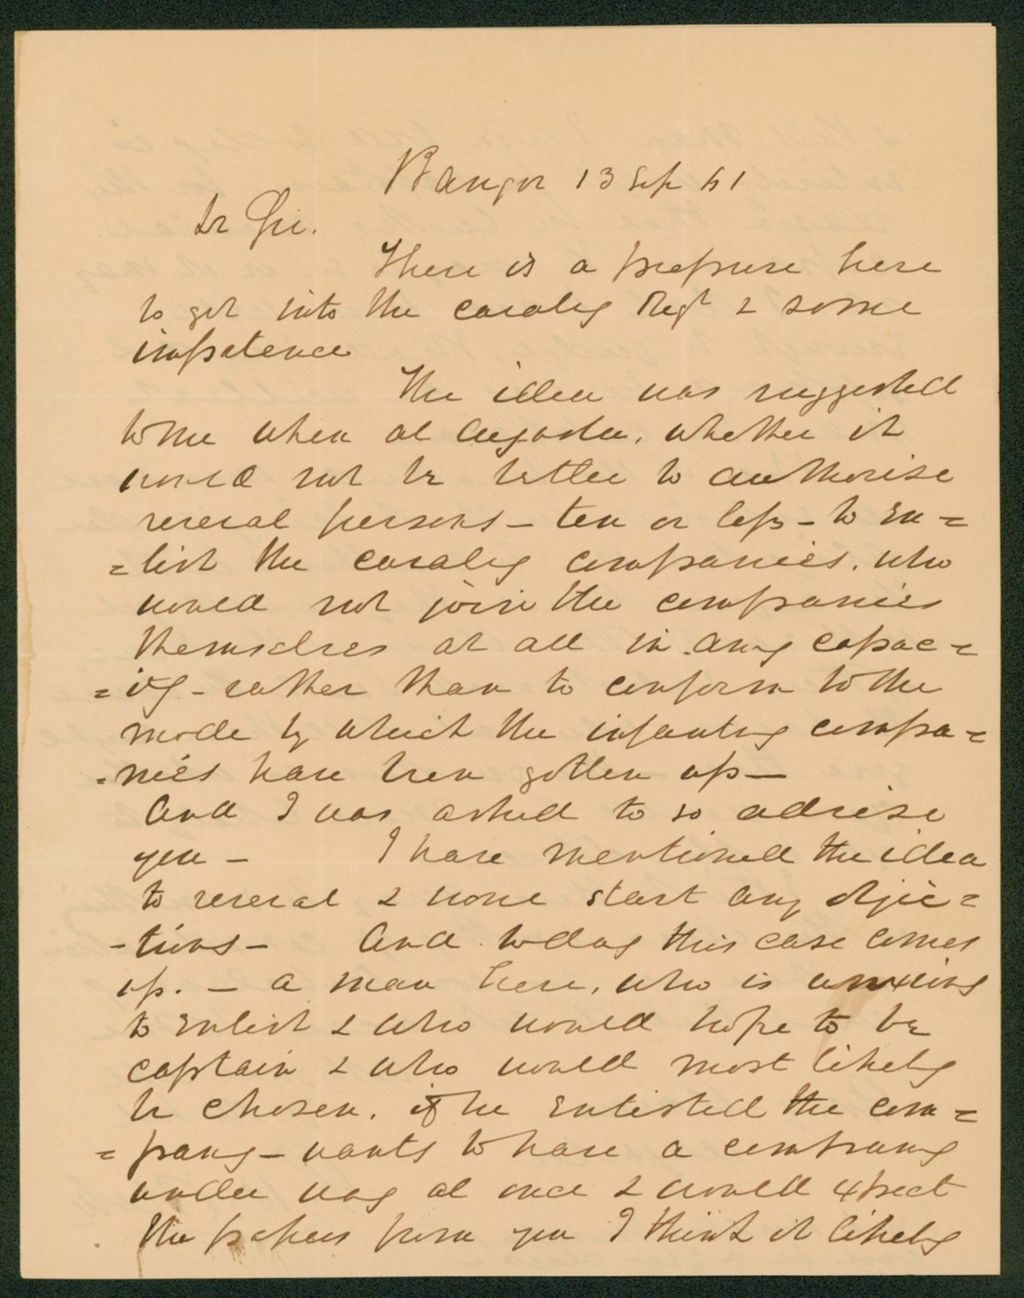 Bangor 13 Sep 61
Dr Sir.
There is a pressure here
to get into the cavalry Regt & some
impatience
The idea was suggested
to me when at Augusta, whether it
would not be better to authorise
several persons - ten or less - to en=
=list the cavalry companies, who
would not join the companies
themselves at all in any capac=
=ity - rather than to conform to the
mode by which the infantry compa=
=nies have been gotten up -
And I was asked to so advise
you - I have mentioned the idea
to several & none start any objec=
-tions - And today this case comes
up. - a man here, who is anxious
to enlist & who would hope to be
captain & who would most likely
be chosen, if he enlisted the com=
=pany - wants to have a company
under way at once & would expect
the papers from you I think it likely